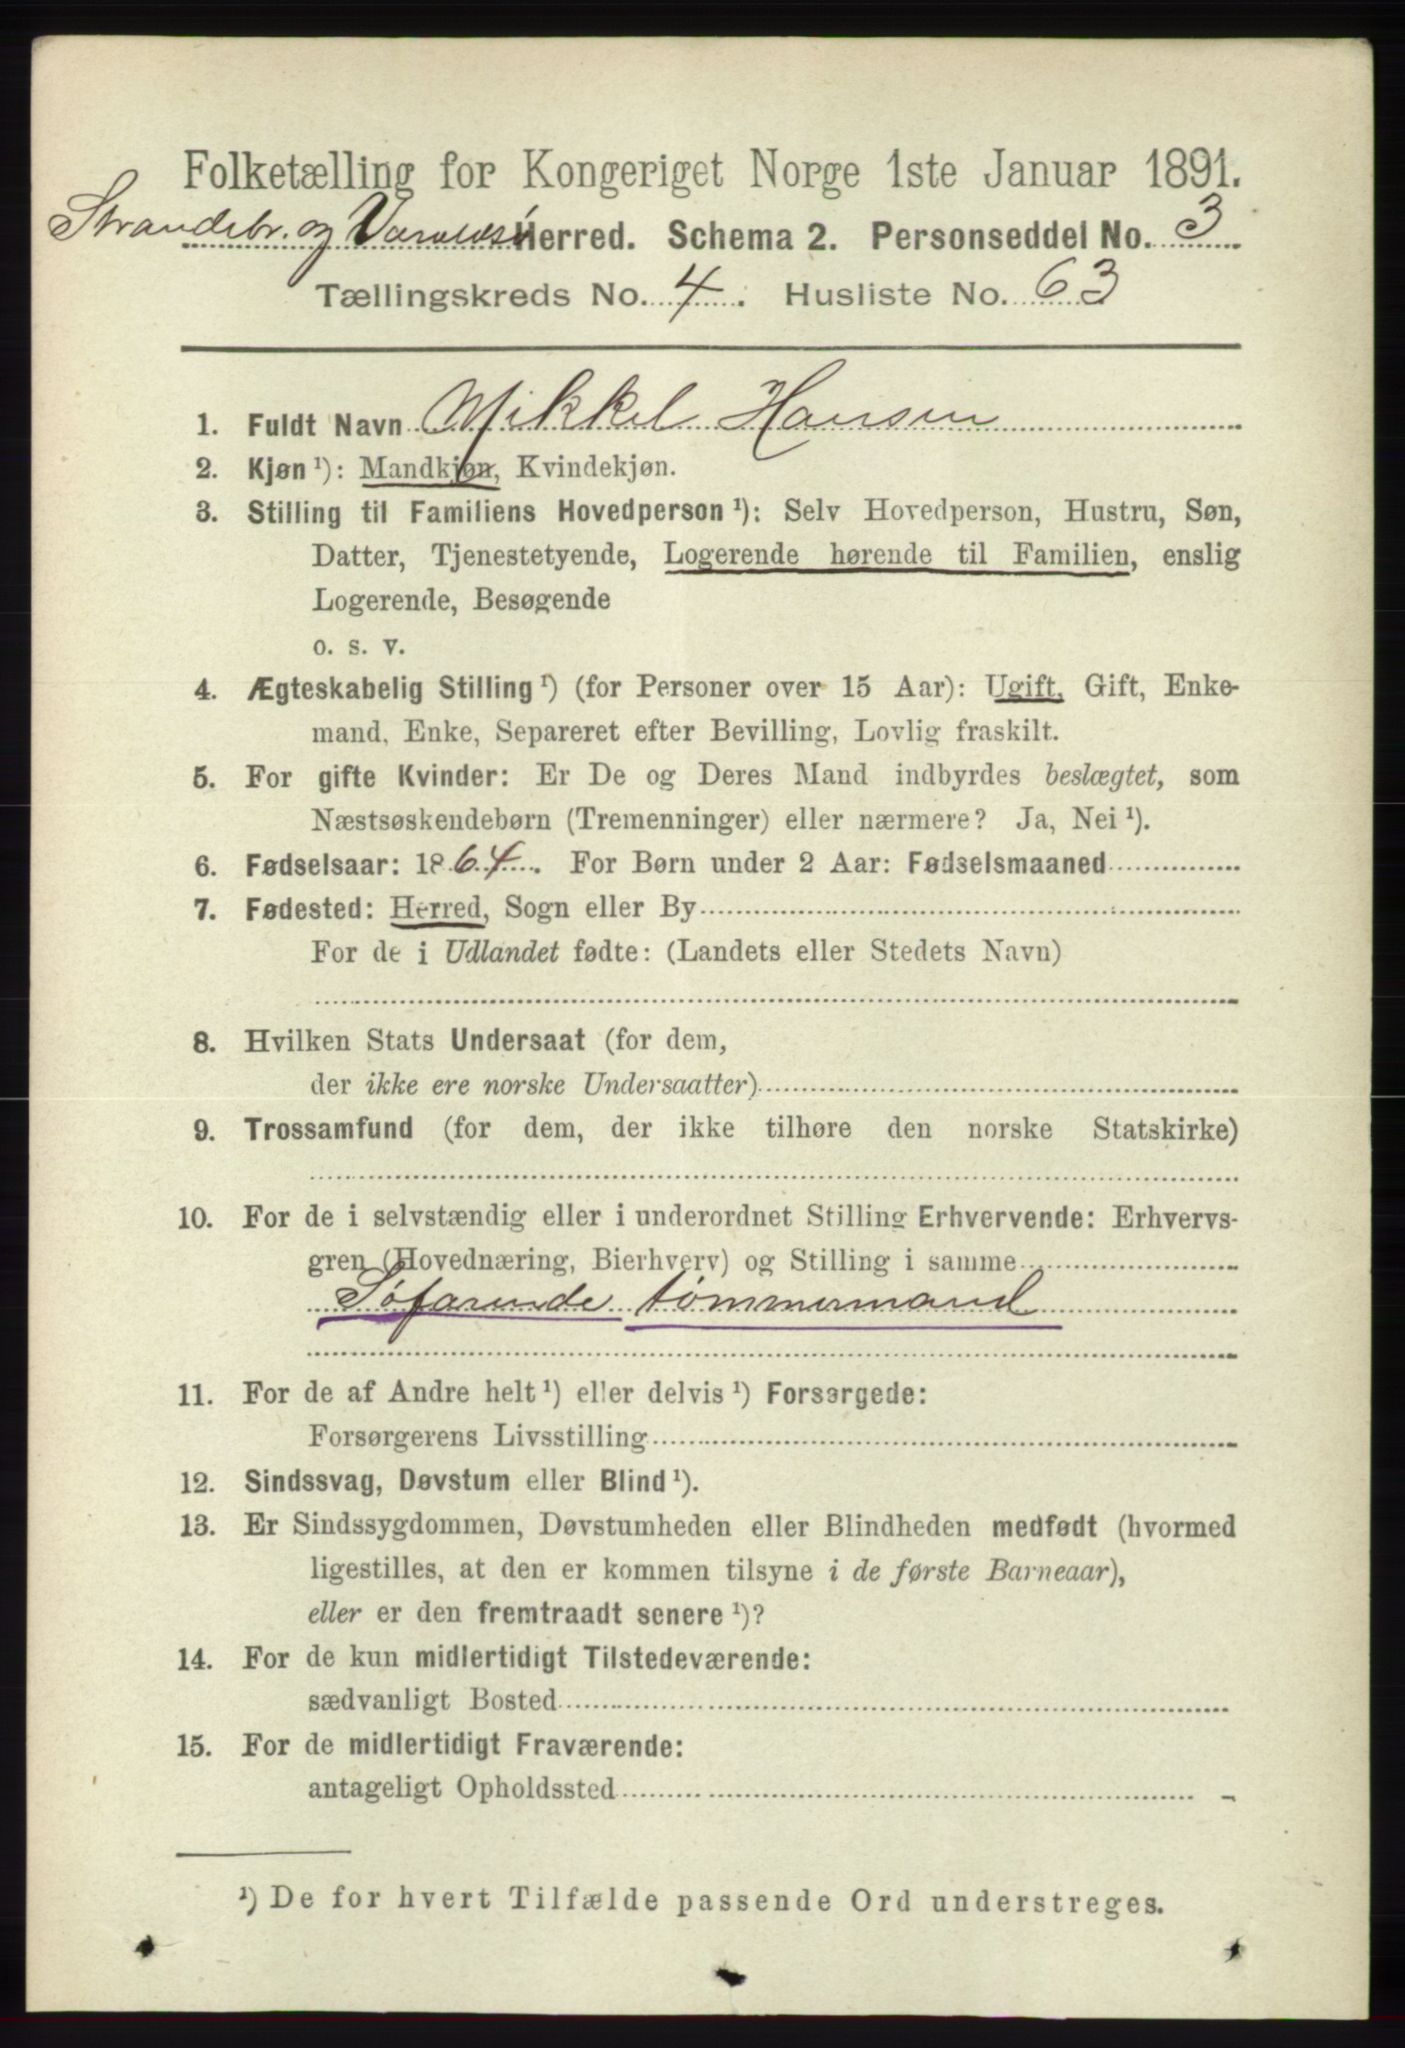 Folketælling for Kongeriget Norge 1ste Januar 1891.
Strandebr. og Varaldsø Herred. Schema 2. Personseddel No. 3
Tællingskreds No. 4. Husliste No. 63
1. Fuldt Navn Mikkel Hansen
2. Kjøn ¹): Mandkjøn, Kvindekjøn.
3. Stilling til Familiens Hovedperson ¹): Selv Hovedperson, Hustru, Søn,
Datter, Tjenestetyende, Logerende hørende til Familien, enslig
Logerende, Besøgende
o. s. v.
4. Ægteskabelig Stilling ¹) (for Personer over 15 Aar): Ugift, Gift, Enke-
mand, Enke, Separeret efter Bevilling, Lovlig fraskilt.
5. For gifte Kvinder: Er De og Deres Mand indbyrdes beslægtet, som
Næstsøskendebørn (Tremenninger) eller nærmere? Ja, Nei ¹).
6. Fødselsaar: 1864. For Børn under 2 Aar: Fødselsmaaned
7. Fødested: Herred, Sogn eller By
For de i Udlandet fødte: (Landets eller Stedets Navn)
8. Hvilken Stats Undersaat (for dem,
der ikke ere norske Undersaatter)
9. Trossamfund (for dem, der ikke tilhøre den norske Statskirke)
10. For de i selvstændig eller i underordnet Stilling Erhvervende: Erhvervs-
gren (Hovednæring, Bierhverv) og Stilling i samme
Søfarende tømmermand
11. For de af Andre helt ¹) eller delvis ¹) Forsørgede:
Forsørgerens Livsstilling
12. Sindssvag, Døvstum eller Blind ¹).
13. Er Sindssygdommen, Døvstumheden eller Blindheden medfødt (hvormed
ligestilles, at den er kommen tilsyne i de første Barneaar),
eller er den fremtraadt senere ¹)?
14. For de kun midlertidigt Tilstedeværende:
sædvanligt Bosted
15. For de midlertidigt Fraværende:
antageligt Opholdssted
¹) De for hvert Tilfælde passende Ord understreges.